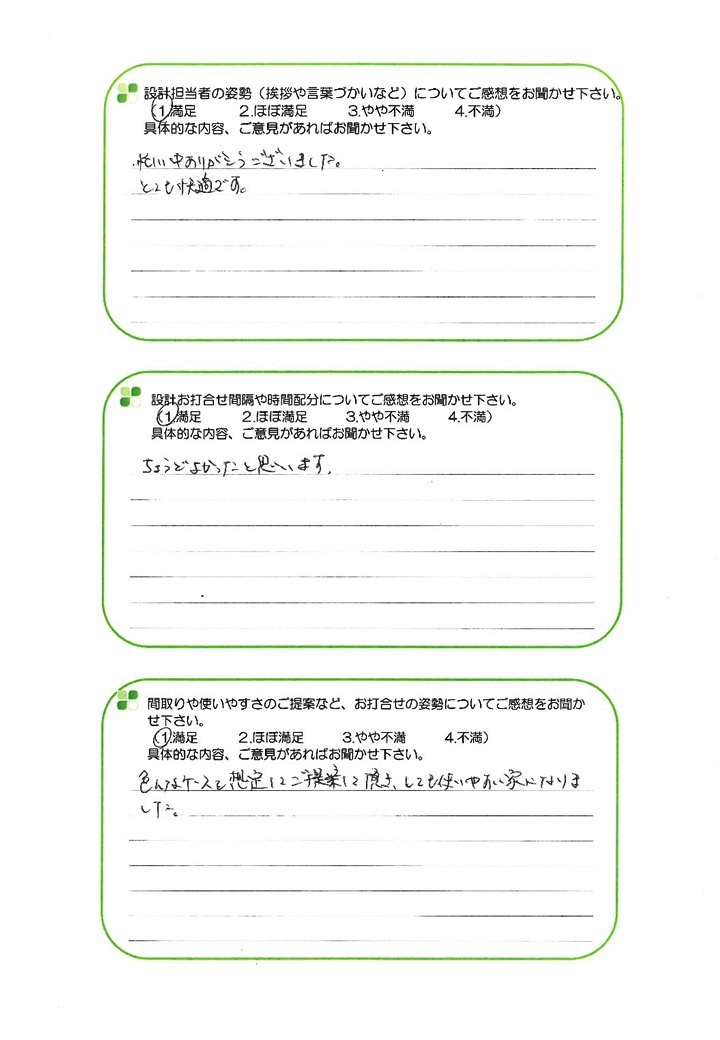 設計担当者の姿勢（挨拶や言葉づかいなど）についてご感想をお聞かせ下さい。
(1.満足 2.ほぼ満足 3.やや不満 4.不満)
具体的な内容、ご意見があればお聞かせ下さい。
忙しい中ありがとうございました。
とても快適です。
設計お打合せ間隔や時間配分についてご感想をお聞かせ下さい。
(1.満足 2.ほぼ満足 3.やや不満 4.不満)
具体的な内容、ご意見があればお聞かせ下さい。
ちょうどよかったと思います。
間取りや使いやすさのご提案など、お打合せの姿勢についてご感想をお聞か
せ下さい。
(1.満足 2.ほぼ満足 3.やや不満 4.不満)
具体的な内容、ご意見があればお聞かせ下さい。
色んなケースを想定してご提案して頂き、とても使いやすい家になりま
した。